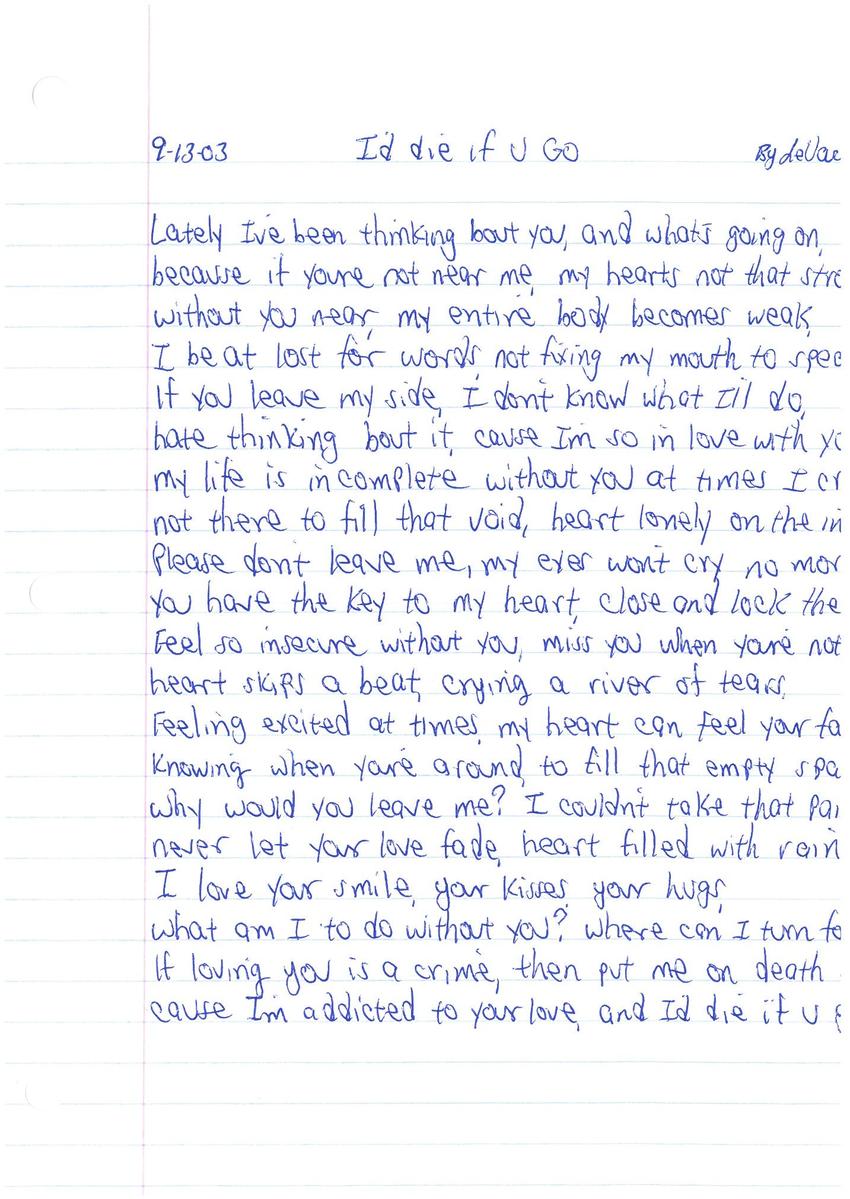 9-13-03 I'd die if U GO By deVae
Lately I've been thinking bout you, and what's going on,
because if you're not near me, my hearts not that stro
without you near, my entire body becomes weak,
I be at lost for words, not fixing my mouth to spea
If you leave my side, I don't know what I'll do,
hate thinking bout it, cause I'm so in love with yo
my life is incomplete without you at times I cr
not there to fill that void, heart lonely on the in
Please don't leave me, my eyes won't cry no mor
You have the key to my heart, close and lock the
Feel so insecure without you, miss you when you're not
heart skips a beat, crying a river of tears,
Feeling excited at times, my heart can feel your fa
Knowing when you're around, to fill that empty spa
why would you leave me? I couldn't take that pai
never let your love fade, heart filled with rain
I love your smile, your kisses, your hugs,
what am I to do without you? where can I turn fo
If loving you is a crime, then put me on death
cause I'm addicted to your love, and I'd die if U